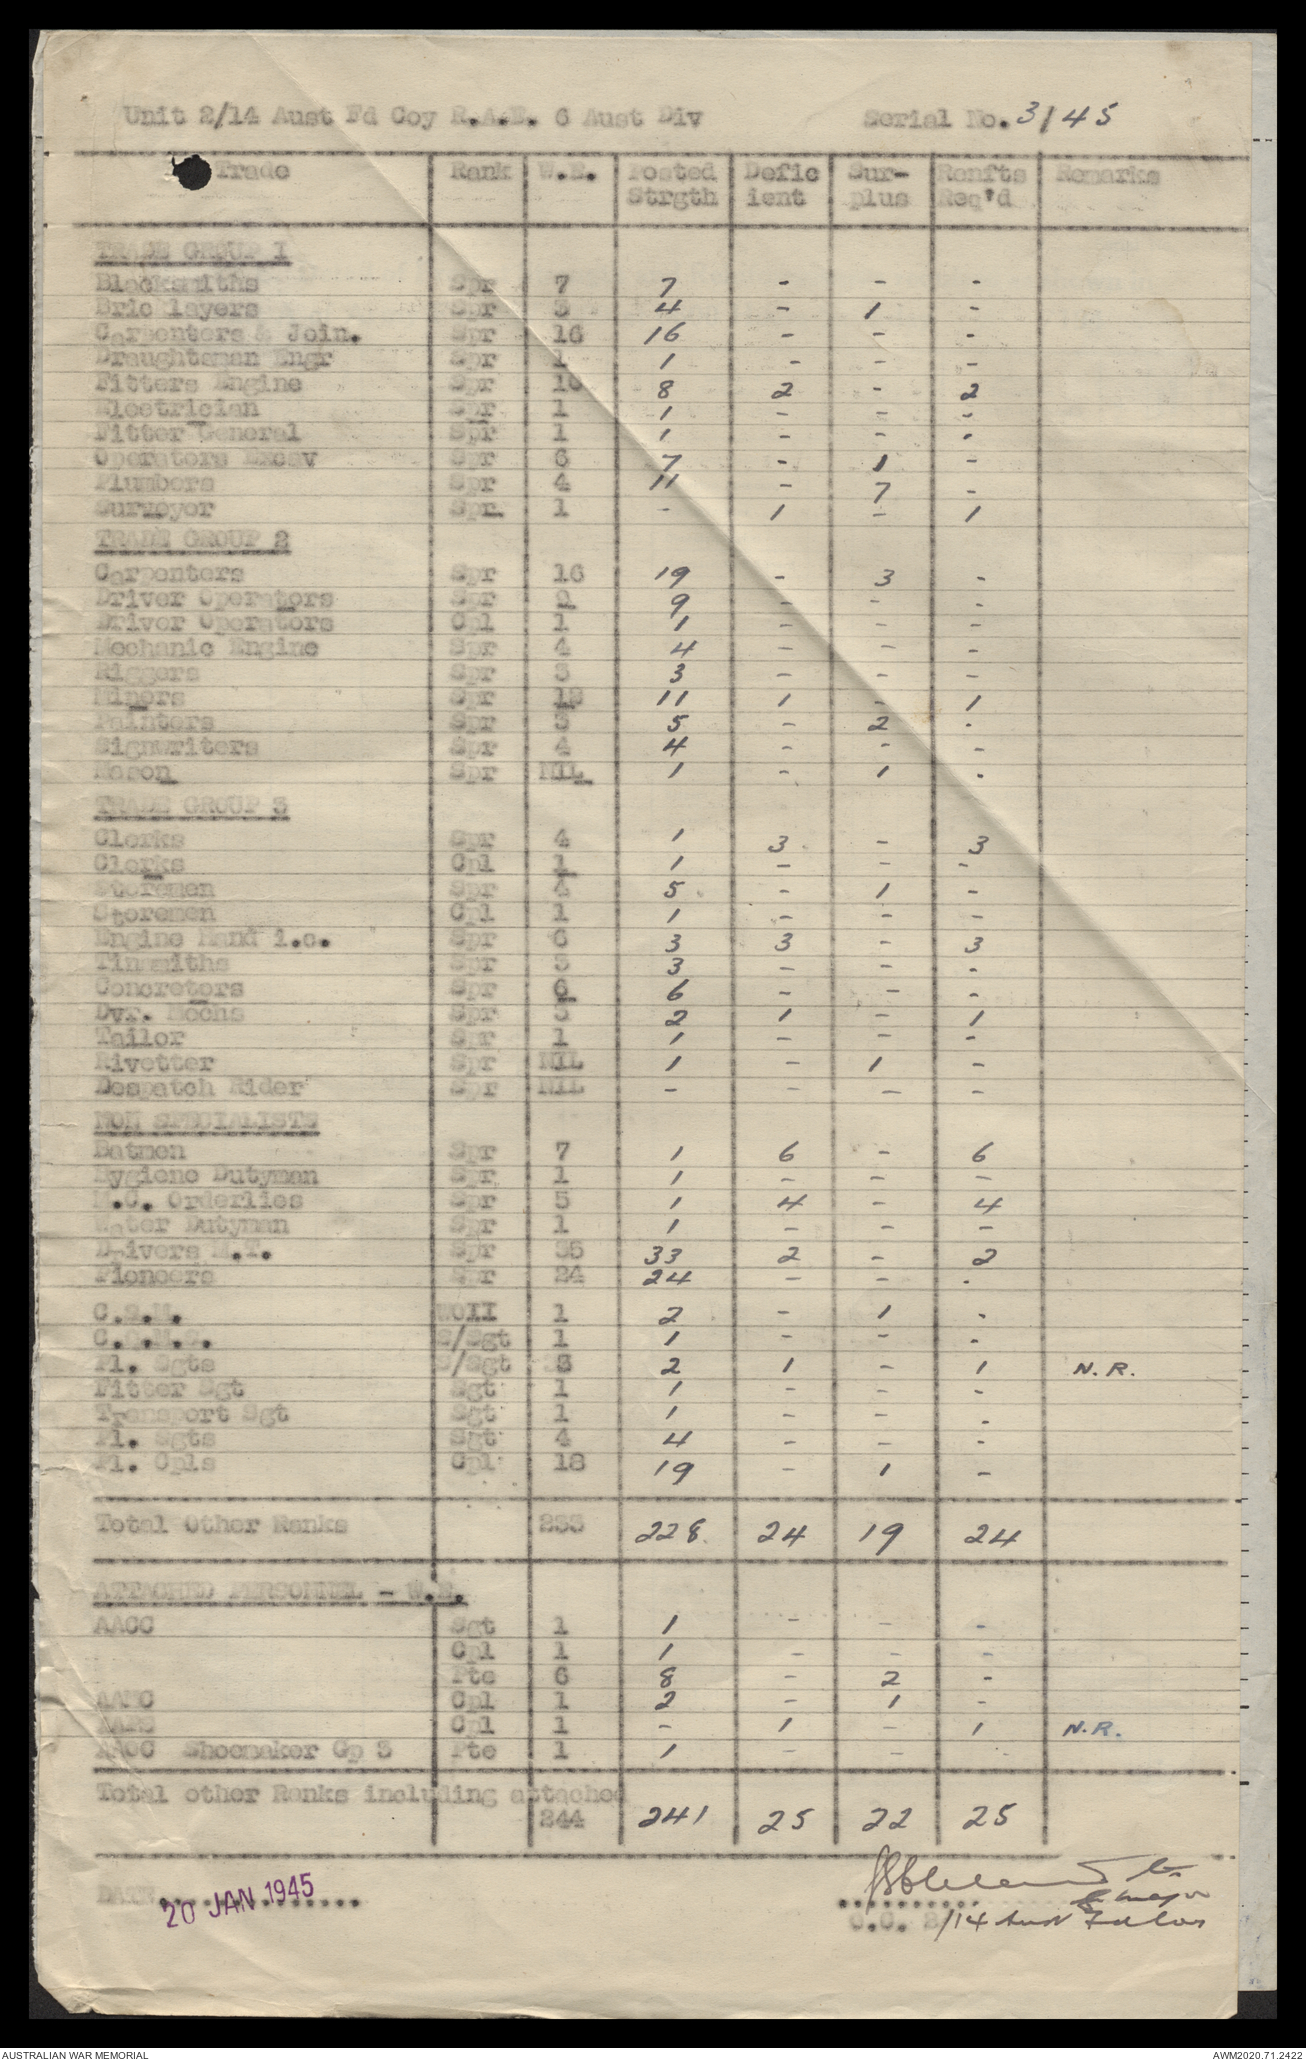 Unit 2/14 Aust Fd Coy R.A.E. 6 Aust Div Serial No. 3/45
Trade Rank W.E. Posted Strgth Defic ient Sur- plus Renfts Req'd Remarks
TRADE GROUP 1
Blacksmiths Spr 7 7 - - -
Bricklayers Spr 3 4 - 1 -
Carpenters & Join. Spr 16 16 - - -
Draughtsman Engr Spr 1 1 - - -
Fitters Engine Spr 10 8 2 - 2
Electrician Spr 1 1 - - -
Fitter General Spr 1 1 - - -
Operators Excav Spr 6 7 - 1 -
Plumbers Spr 4 11 - 7 -
Surveyor Spr. 1 - 1 - 1
TRADE GROUP 2
Carpenters Spr 16 19 - 3 -
Driver Operators Spr 9 9 - - -
Driver Operators Cpl 1 1 - - -
Mechanic Engine Spr 4 4 - - -
Riggers Spr 3 3 - - -
Miners Spr 12 11 1 - 1
Painters Spr 3 5 - 2 -
Signwriters Spr 4 4 - - -
Mason Spr NIL 1 - 1 -
TRADE GROUP 3
Clerks Spr 4 1 3 - 3
Clerks Cpl 1 1 - - -
Storemen Spr 4 5 - 1 -
Storemen Cpl 1 1 - - -
Engine Hand i.c. Spr 6 3 3 - 3
Tinsmiths Spr 3 3 - - -
Concretors Spr 6 6 - - -
Dvr. Mechs Spr 3 2 1 - 1
Tailor Spr 1 1 - - -
Rivetter Spr NIL 1 - 1 -
Despatch Rider Spr NIL - - - -
NON SPECIALISTS
Batmen Spr 7 1 6 - 6
Hygiene Dutyman Spr 1 1 - - -
M.C. Orderlies Spr 5 1 4 - 4
Water Dutyman Spr 1 1 - - -
Drivers M.T. Spr 35 33 2 - 2
Pioneers Spr 24 24 - - -
C.S.M. WOII 1 2 - 1 -
C.Q.M.S. S/Sgt 1 1 - - -
Pl. Sgts S/Sgt 3 2 1 - 1 N.R.
Fitter Sgt Sgt 1 1 - - -
Transport Sgt Sgt 1 1 - - -
Pl. Sgts Sgt 4 4 - - -
Pl. Cpls Cpl 18 19 - 1 -
Total Other Ranks 233 228 24 19 24
ATTACHED PERSONNEL - W.E.
AACC Sgt 1 1 - - -
Cpl 1 1 - - -
Pte 6 8 - 2 -
AAMC Cpl 1 2 - 1 -
Cpl 1 - 1 - 1 N.R.
AAOC Shoemaker Gp 3 Pte 1 1 - - -
Total other Ranks including attached
244 241 25 22 25
DATE 20 JAN 1945
Major
O.C. 2/14 Aust Fd Coy
AUSTRALIAN WAR MEMORIAL AWM2020.71.2422